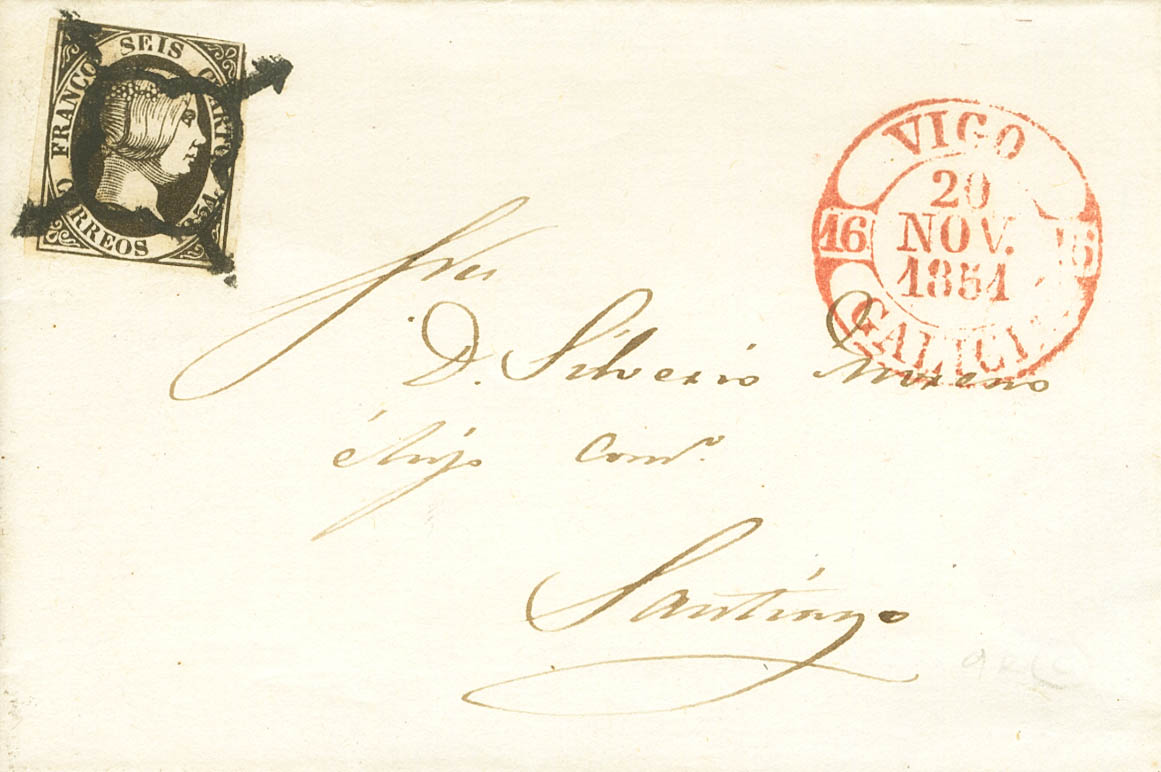 FRANCO SEIS CUARTOS 1851.
CORREOS
VIGO
20
NOV.
1851
16 16
GALICIA
Sres
D. Silverio Moreno
é hijo Comº.
Santiago